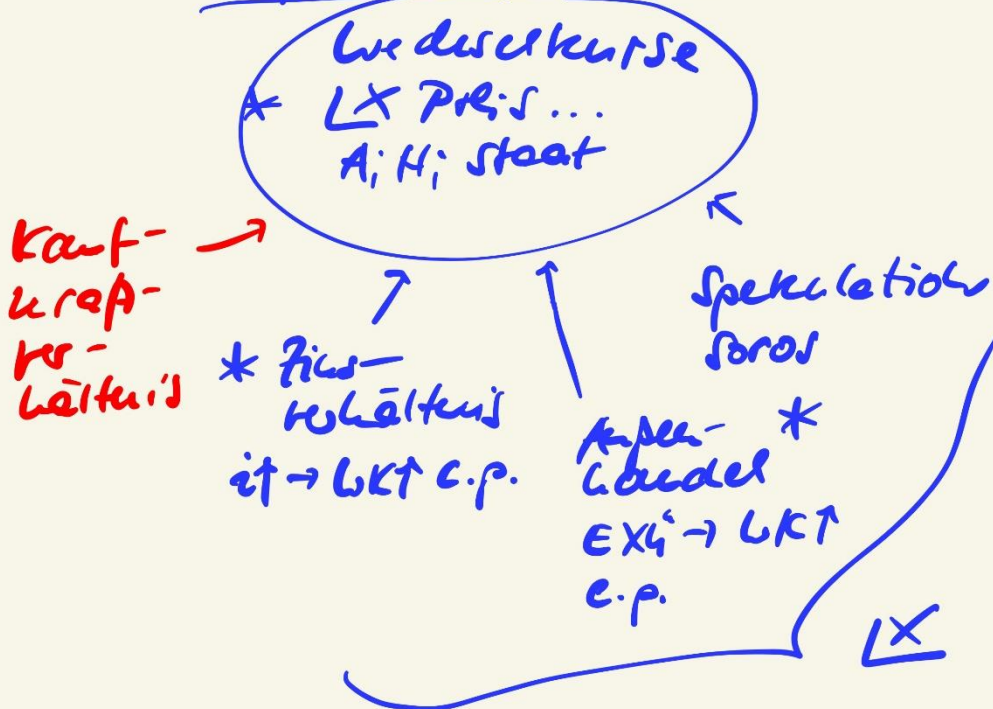 Wechselkurse
* Preis...
A; N; Staat
Kauf-
kraft-
ver-
hältnis
* Zins-
verhältnis
i↑ → WK↑ c.p.
Außen- *
handel
→ WK↑
c.p.
Spekulation
Soros